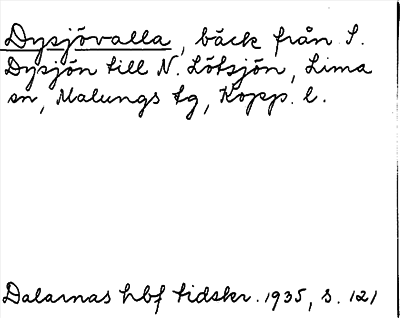 Dysjövalla, bäck från S.
Dysjön till N. Lötsjön, Lima
sn, Malungs tg, Kopp. l.
Dalarnas hbf tidskr. 1935, s. 121